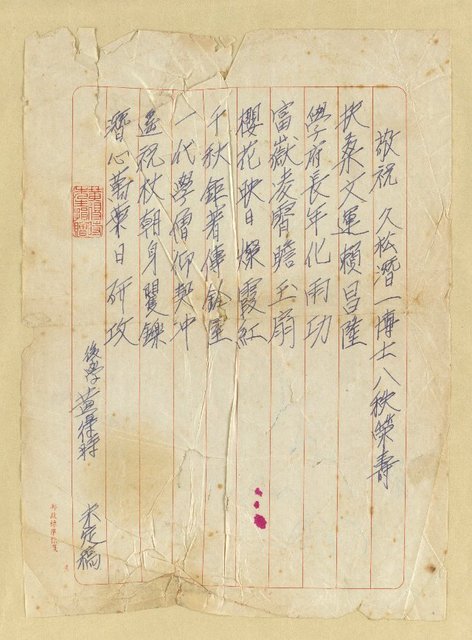 敬祝 久松潛一博士八秩榮壽
扶桑文運賴昌隆
學府長年化雨功
富嶽凌霄瞻玉扇
櫻花映日燦霞紅
千秋鉅著傳鈴屋
一代學僧仰契冲
遙祝杖朝身矍鑠
潛心萬葉日研攻
後學 黃得時 未定稿